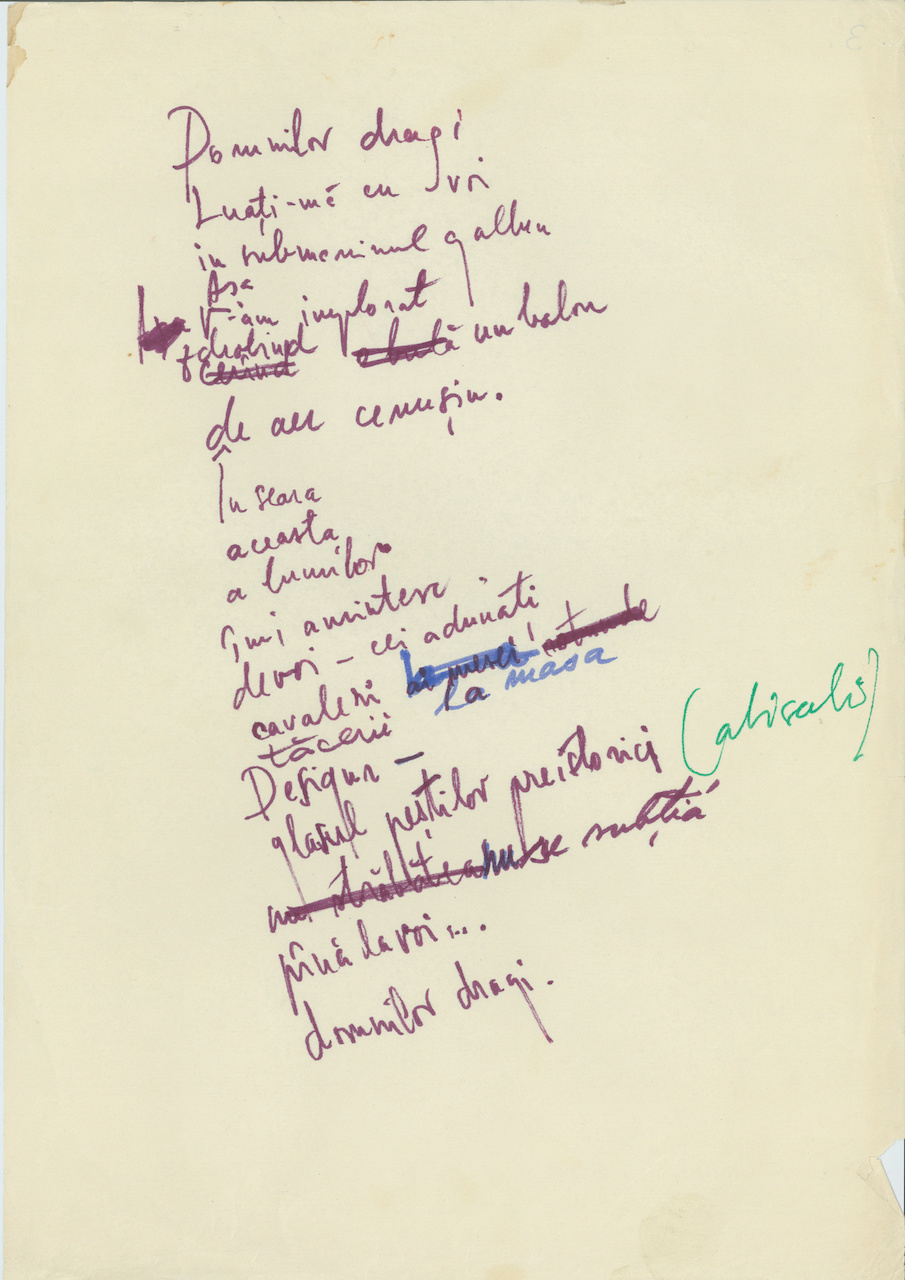 Domnilor dragi
Luați-mă cu voi
în submarinul galben
Așa
V-am implorat
zdrobind un balon
de aer cenușiu.
În seara
aceasta
a lumilor
îmi amintesc
de voi – cei adunați
cavaleri la masa
tăcerii
Desigur –
glasul peștilor preistorici (abisali)
nu se subția
pînă la voi...
domnilor dragi.